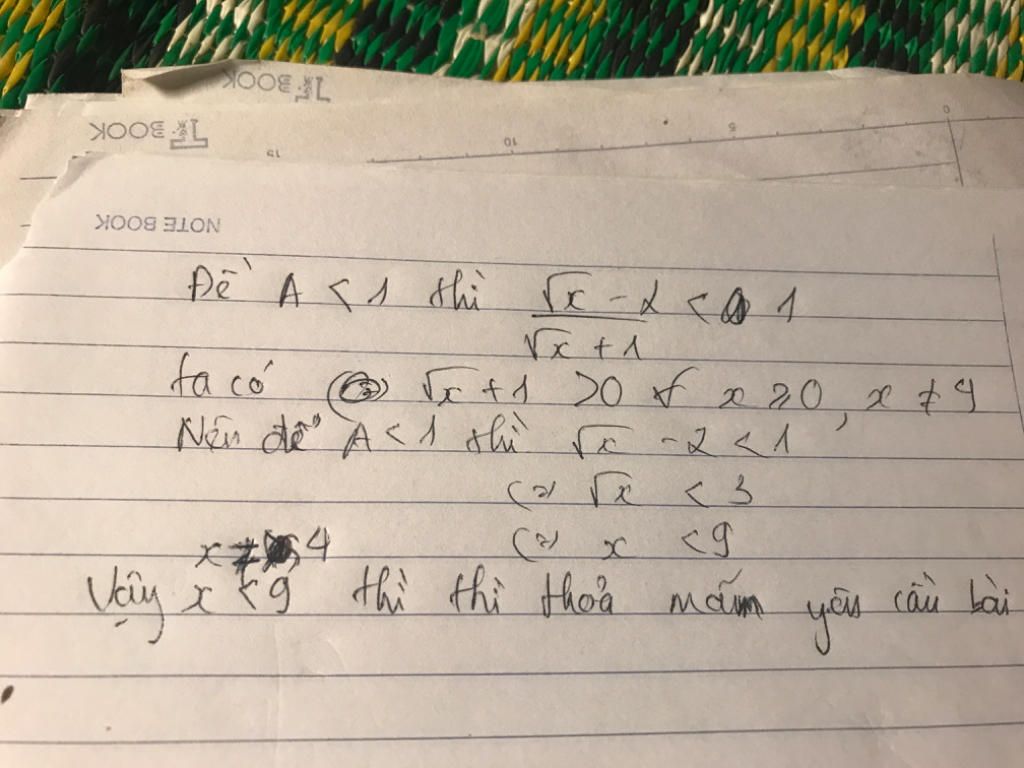 BOOK
BOOK
0 5 10 15
NOTE BOOK
Để A < 1 thì \frac{\sqrt{x} - 2}{\sqrt{x} + 1} < 1
ta có \sqrt{x} + 1 > 0 ∀ x ≥ 0, x ≠ 9
Nên để A < 1 thì \sqrt{x} - 2 < 1
(=) \sqrt{x} < 3
(=) x < 9
x ≠ 4
Vậy x < 9 thì thì thoả mãn yêu cầu bài